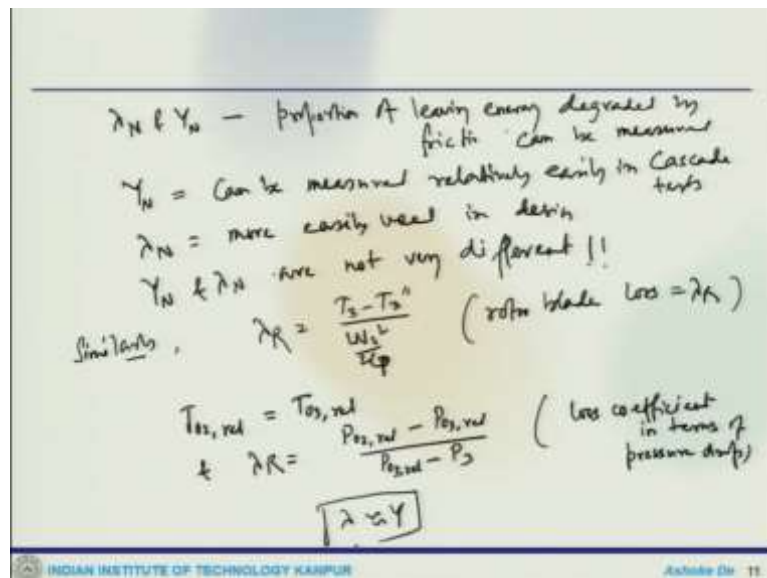 λ_N & Y_N — proportion of leaving energy degraded by
friction can be measured
Y_N = Can be measured relatively easily in Cascade
tests
λ_N = more easily used in design
Y_N & λ_N are not very different!!
Similarly, λ_R = (T_3 - T_3'') / (W_3^2 / 2C_p) (rotor blade loss = λ_R)
T_02,rel = T_03,rel
& λ_R = (P_02,rel - P_03,rel) / (P_03,rel - P_3) (loss coefficient
in terms of
pressure drop)
λ ≈ Y
INDIAN INSTITUTE OF TECHNOLOGY KANPUR
Ashoke De 11